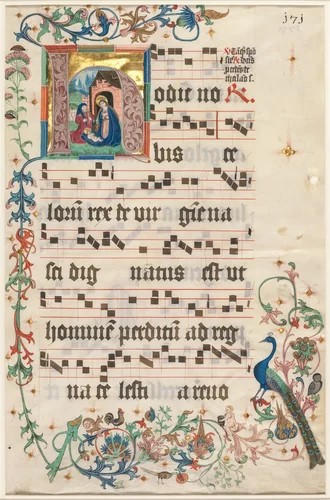 171
Hodie no R.
bis ce
lorū rex de vir gīe na
sci dig natus est ut
hominē perditū ad reg
na ce lesti a revo